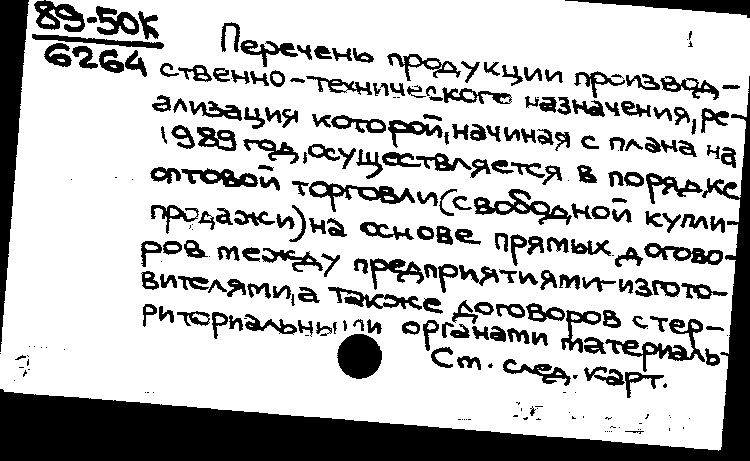 89-50к
6264
1
Перечень продукции производ-
ственно-технического назначения, ре-
ализация которой, начиная с плана на
1989 год, осуществляется в порядке
оптовой торговли (свободной купли-
продажи) на основе прямых догово-
ров между предприятиями-изгото-
вителями, а также договоров с тер-
риториальными органами материаль-
См. след. карт.